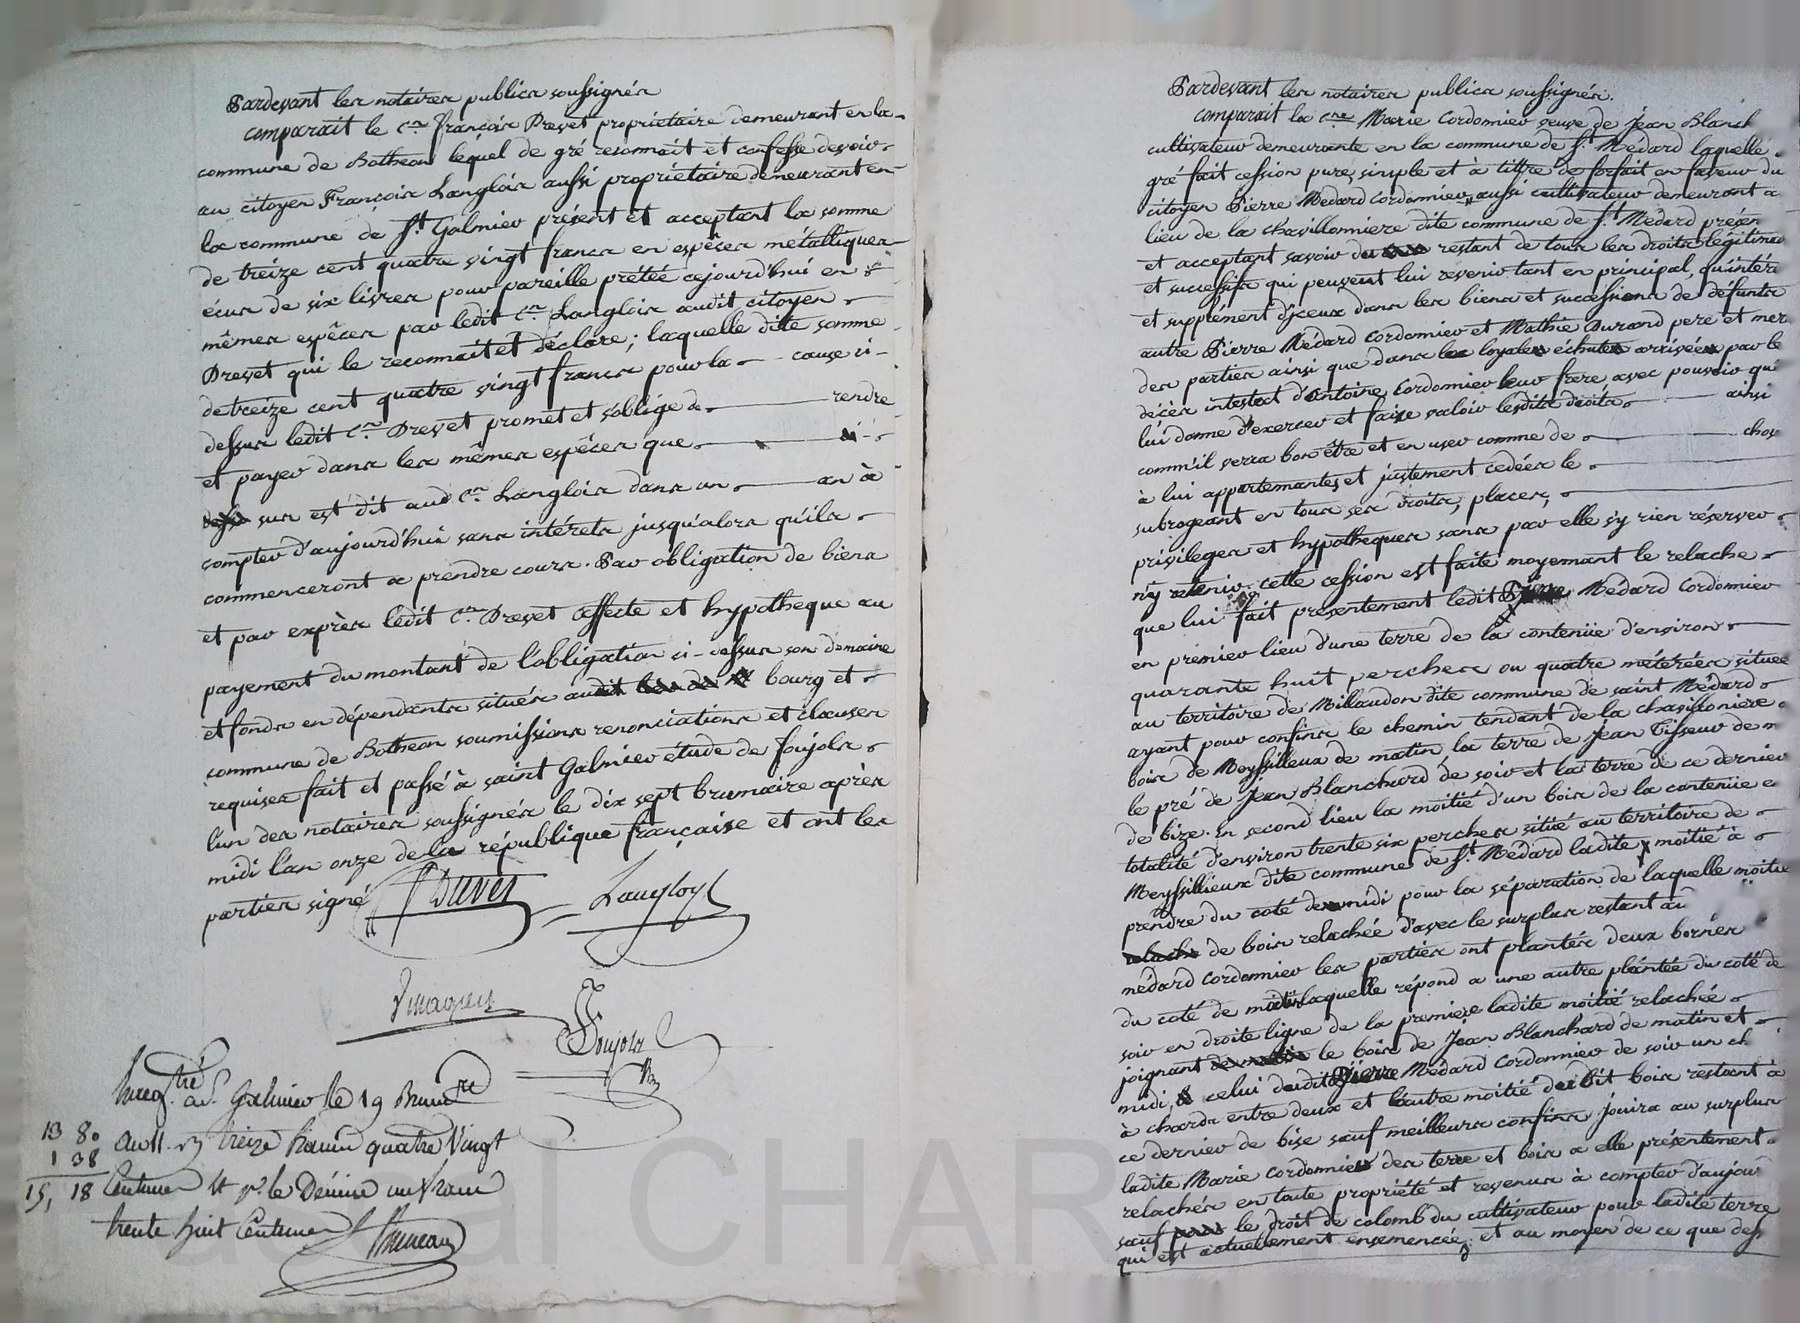 Pardevant les notaires publics soussignés
comparait le c.en françois Drevet propriétaire demeurant en la
commune de Botheon lequel de gré reconnait et confesse devoir
au citoyen François Langlois aussi propriétaire demeurant en
la commune de S.t Galmier présent et acceptant la somme
de treize cent quatre vingt francs en espêces métalliques
écus de six livres pour pareille prétée cejourd'hui en
mêmes espêces par ledit c.en Langlois audit citoyen
Drevet qui le reconnait et déclare ; laquelle dite somme
de treize cent quatre vingt francs pour la cause ci-
dessus ledit c.en Drevet promet et s'oblige de rendre
et payer dans les mêmes espêces que
sus est dit aud c.en Langlois dans un an à
compter d'aujourd'hui sans intérets jusqu'alors qu'ils
commenceront a prendre cours. Par obligation de biens
et par exprès ledit c.en Drevet affecte et hypotheque au
payement du montant de l'obligation ci-dessus son domaine
et fonds en dépendants situés bourg et
commune de Botheon soumissions renonciations et clauses
requises fait et passé à saint Galmier étude de Soujols
l'un des notaires soussignés le dix sept brumaire après
midi l'an onze de la république française et ont les
parties signé
Drevet Langloys
Soujols
Enreg.tré à S.t Galmier le 19 Brum.re
13 80 an 11 treize francs quatre vingt
1 38 Centimes et p.r le Décime un franc
15, 18
trente huit Centimes
Pardevant les notaires publics soussignés.
comparait la c.ne Marie Cordomier veuve de Jean Blanch
cultivateur demeurante en la commune de S.t Médard laquelle
gré fait cession pure, simple et à tittre de forfait en faveur du
citoyen Pierre Médard Cordomier, aussi cultivateur demeurant a
lieu de la chavillonniere dite commune de S.t Médard présen
et acceptant savoir du restant de tous les droits légitimes
et successifs qui peuvent lui revenir tant en principal, qu'intéré
et supplément d'iceux dans les biens et successions de défunts
autre Pierre Médard Cordomier et Mathie Durand pere et mer
des parties ainsi que dans echute arrivée par le
décès intestat d'Antoine Cordomier leur frere, avec pouvoir qu'
lui donne d'exercer et faire valoir lesdits droits ainsi
comm'il verra bon être et en user comme de chos
à lui appartenantes et justement cedées le
subrogeant en tous ses droits, places,
privileges et hypotheques sans par elle s'y rien réserver
n'y retenir, cette cession est faite moyennant le relache
que lui fait présentement ledit Pierre Médard Cordomier
en premier lieu d'une terre de la contenüe d'environ
quarante huit perches ou quatre métérées située
au territoire de Millaudon dite commune de saint Médard
ayant pour confins le chemin tendant de la chavillonniere
bois de Meyssilleux de matin, la terre de Jean Tisseur de m
le pré de Jean Blanchard de soir et la terre de ce dernier
de bize. En second lieu la moitié d'un bois de la contenüe e
totalité d'environ trente six perches sitüé au territoire de
Meyssillieux dite commune de S.t Médard ladite moitié à
prendre du coté de midi pour la séparation de laquelle moitié
de bois relachée d'avec le surplus restant au
médard Cordomier les parties ont plantés deux bornes
du coté de matin laquelle répond a une autre plantée du coté de
soir en droite ligne de la premiere ladite moitié relachée
joignant le bois de Jean Blanchard de matin et
midi, celui dudit Pierre Médard Cordomier de soir un ch
à chards entre deux et l'autre moitié dudit bois restant à
ce dernier de bise sauf meilleurs confins jouira au surplus
ladite Marie Cordomier des terre et bois a elle présentement
relachés en toute propriété et revenus à compter d'aujour
sauf le droit de colomb du cultivateur pour ladite terre
qui est actuellement ensemencée ; et au moyen de ce que des